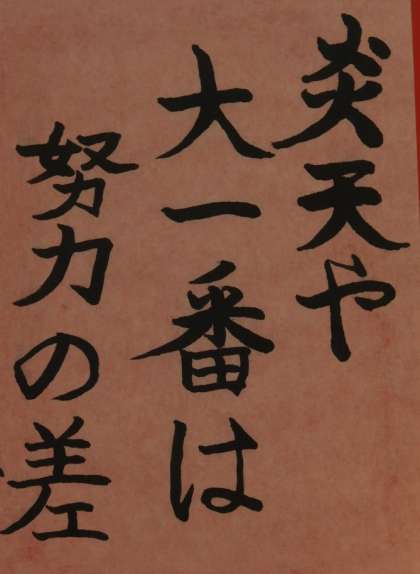 炎天や
大一番は
努力の差